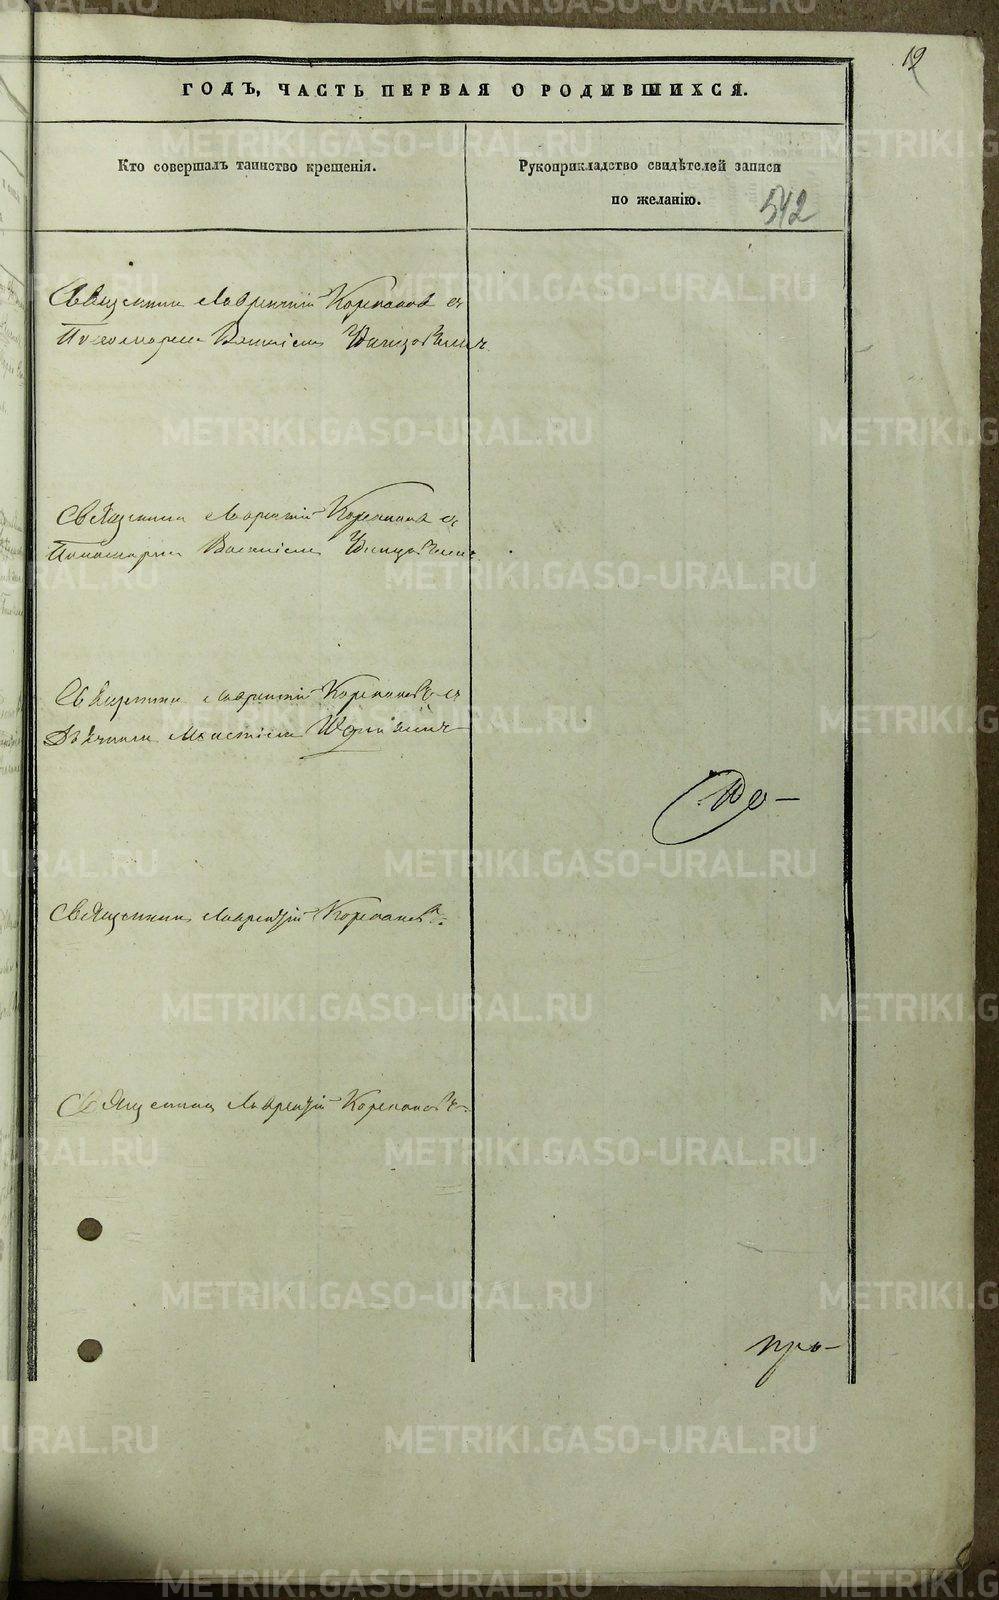 19
ГОДЪ, ЧАСТЬ ПЕРВАЯ О РОДИВШИХСЯ.
Кто совершалъ таинство крещенія.
Рукоприкладство свидѣтелей записи
по желанію.
542
Священникъ Лаврентій Корепановъ съ
Пономаремъ
Священникъ Лаврентій Корепановъ съ
Пономаремъ
Священникъ Лаврентій Корепановъ съ
Священникъ Лаврентій Корепановъ
Священникъ Лаврентій Корепановъ
про-
METRIKI.GASO-URAL.RU